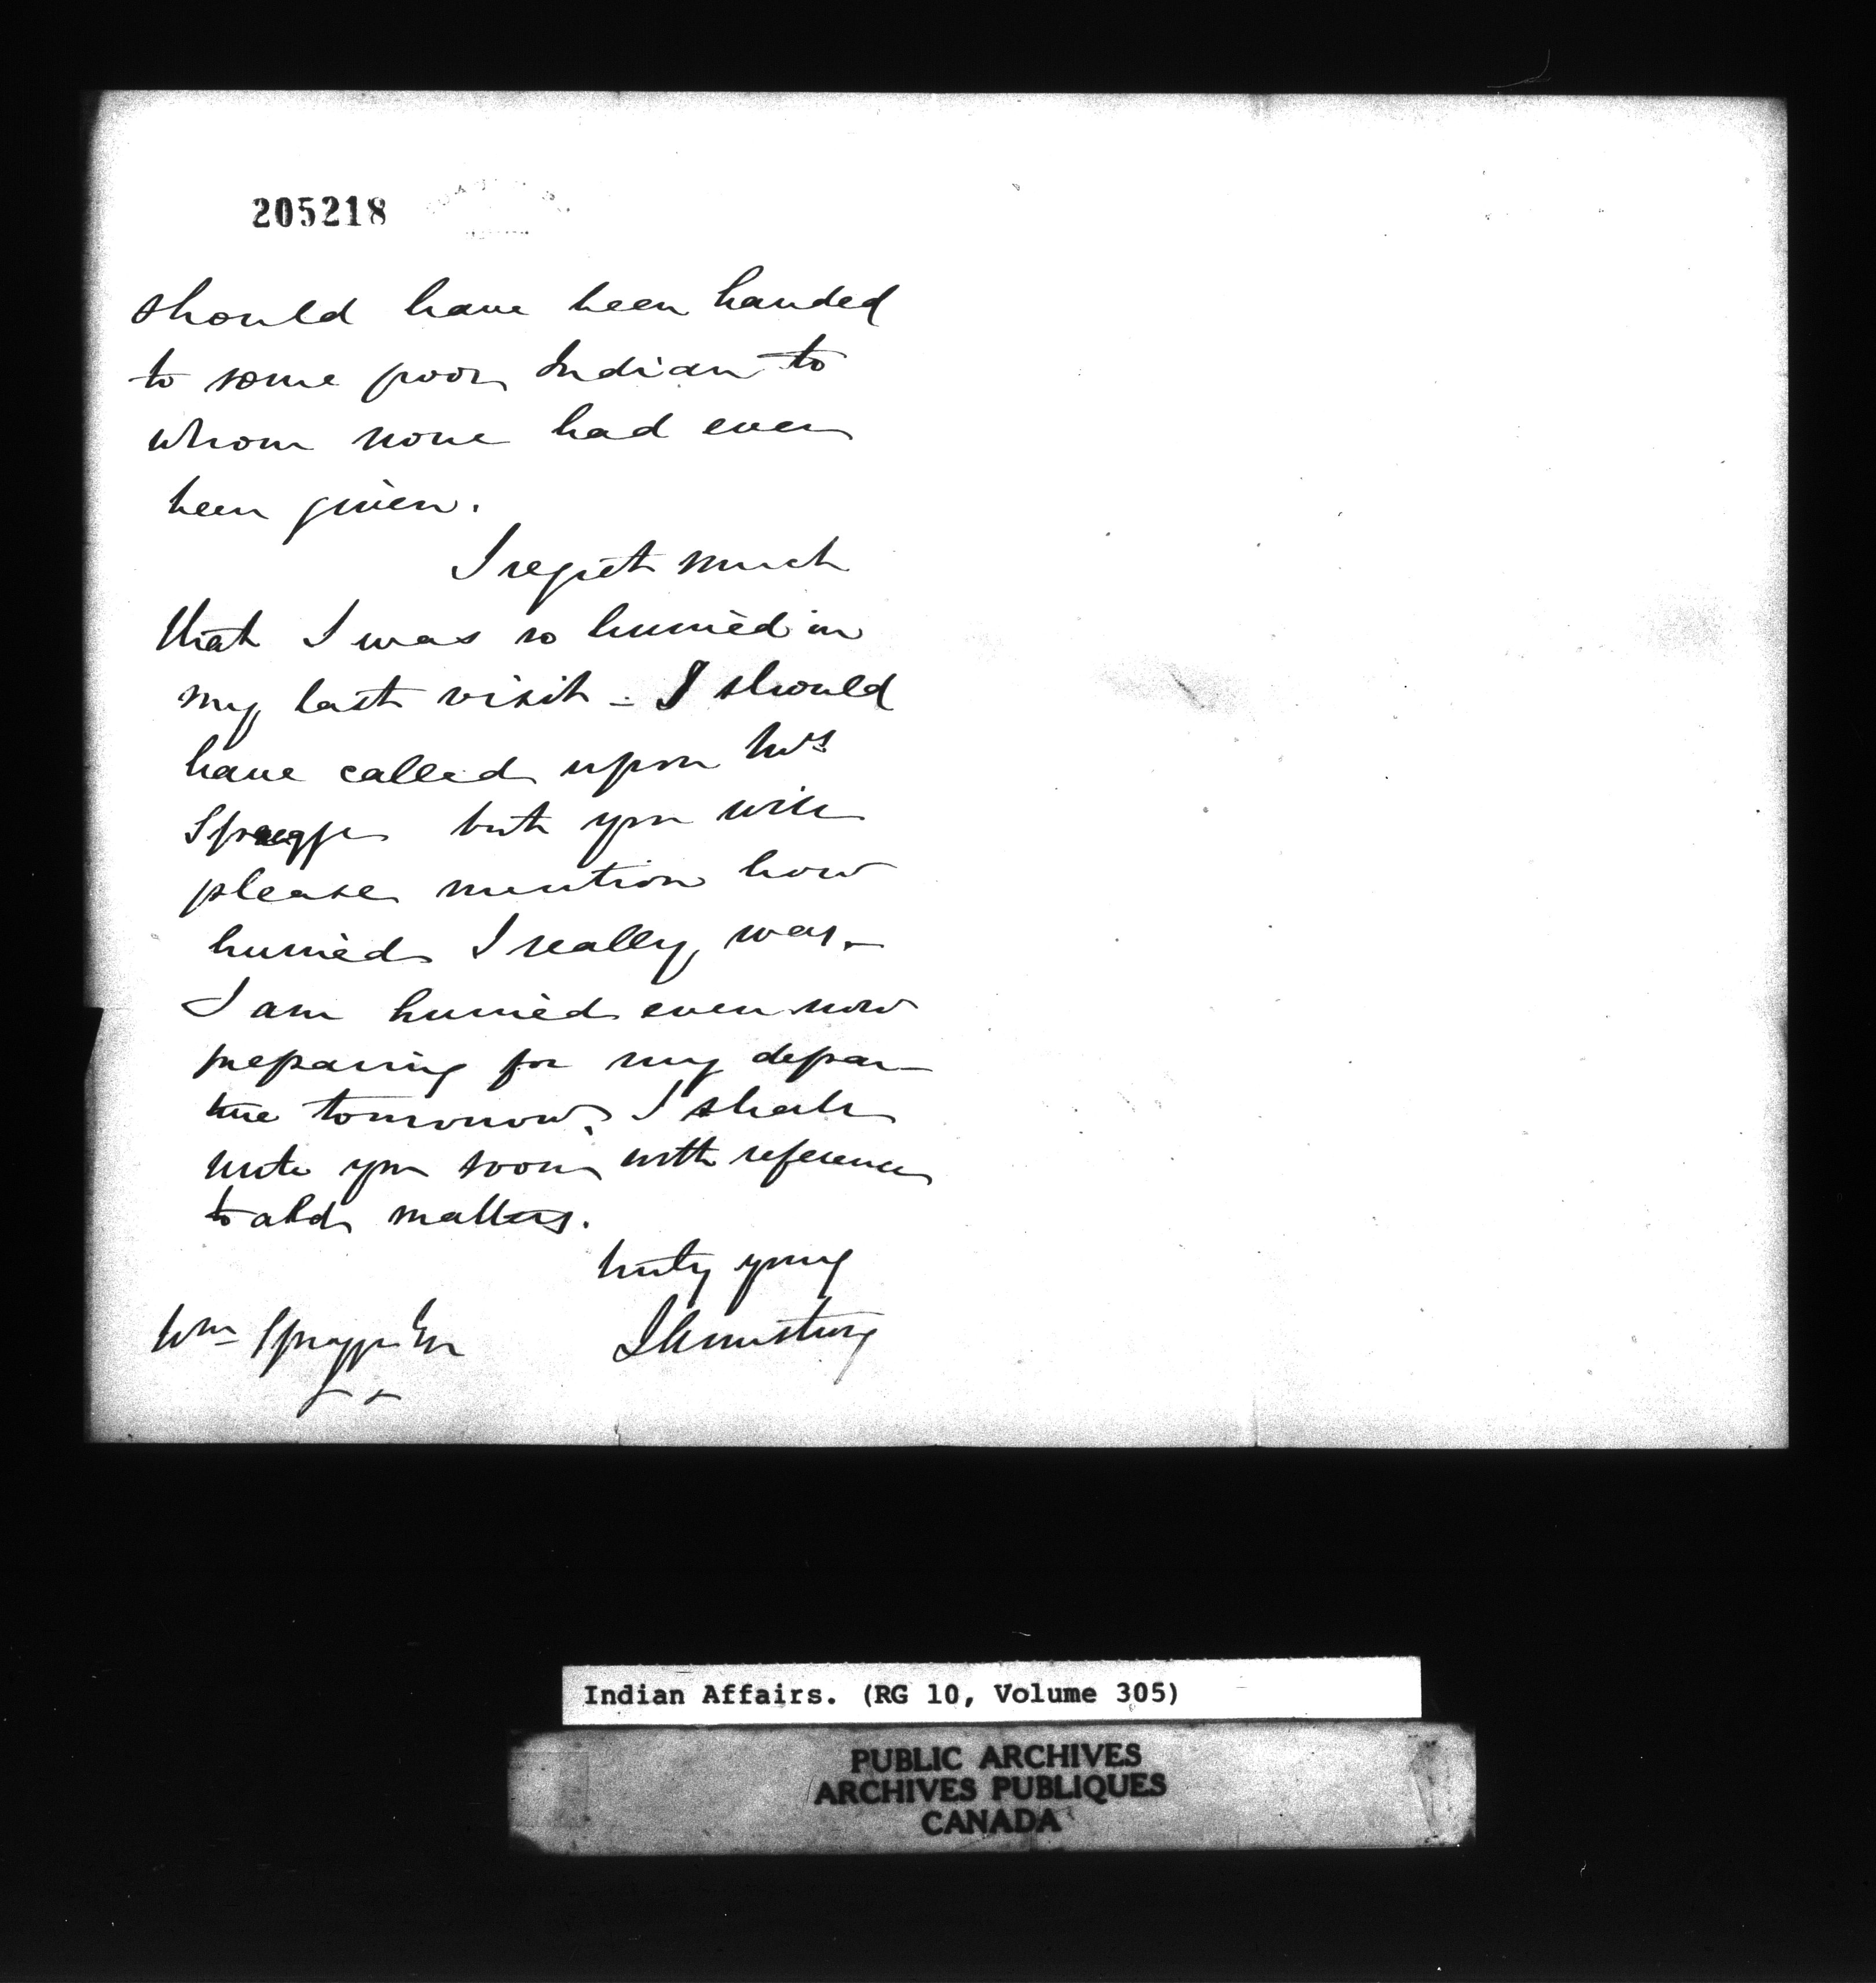 205218
should have been handed
to some poor Indian to
whom none had ever
been given.
I regret much
that I was so hurried in
my last visit - I should
have called upon Mrs
Spragge but you will
please mention how
hurried I really was.
I am hurried even now
preparing for my depar-
ture tomorrow. I shall
write you soon with reference
to matters.
truly yours
Wm Spragge Esr
Armstrong
Indian Affairs. (RG 10, Volume 305)
PUBLIC ARCHIVES
ARCHIVES PUBLIQUES
CANADA